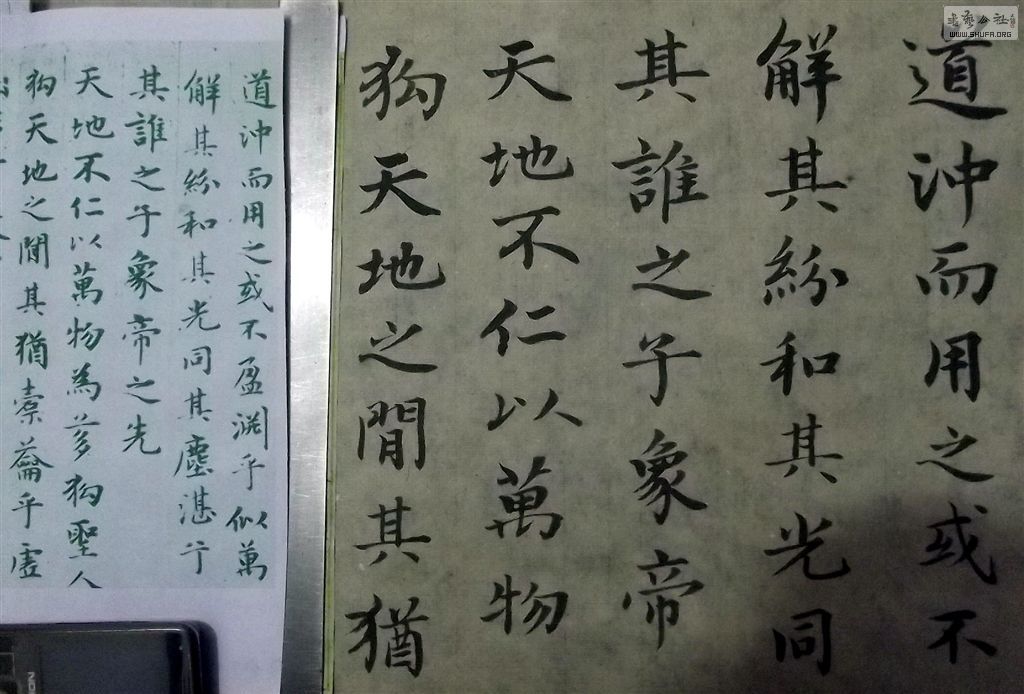 道沖而用之或不
解其紛和其光同
其誰之子象帝
天地不仁以萬物
狗天地之閒其猶
道沖而用之或不盈淵乎似萬
解其紛和其光同其塵湛兮
其誰之子象帝之先
天地不仁以萬物為芻狗聖人
狗天地之閒其猶橐籥乎虛
書藝公社
WWW.SHUFA.ORG